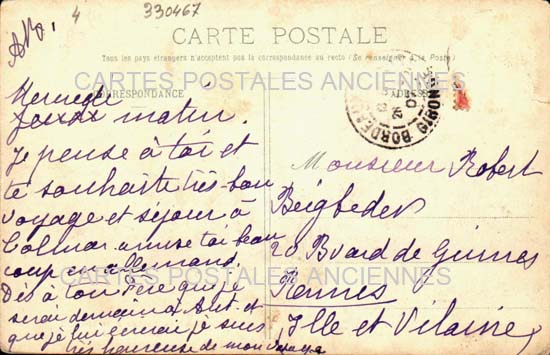 4
330467
CARTE POSTALE
Tous les pays étrangers n'acceptent pas la correspondance au recto (Se renseigner à la Poste)
CARTES POSTALES ANCIENNES
CORRESPONDANCE
ADRESSE
matin.
Je pense à toi et
te souhaite très bon
voyage et séjour à
Colmar amuse toi beau
coup en allemand.
Dis à ton Père que je
serai demain à et
que je lui je suis
très heureuse de mon voyage
Monsieur Robert
Beigbeder
20 Bvard de Guines
Rennes
Ille et Vilaine
CARTES POSTALES ANCIENNES
BORDEAUX